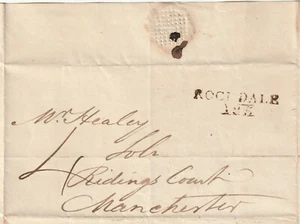 ROCHDALE
Mr. Healey
Solr
4
Ridings Court
Manchester